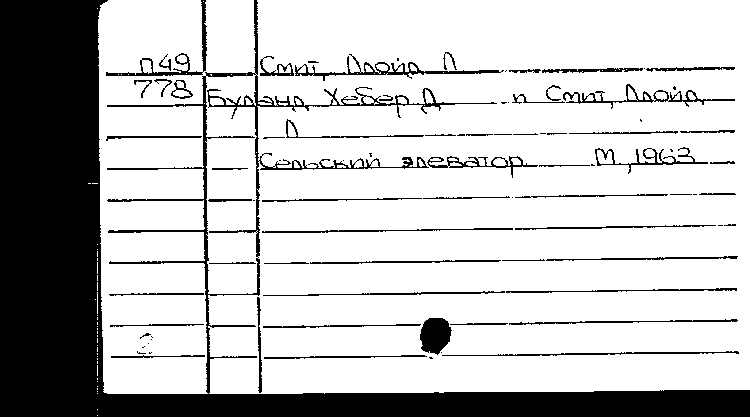 П49 Смит, Ллойд Л
778 Буланд Хебер Д и Смит, Ллойд
Л
Сельский элеватор М, 1963
2